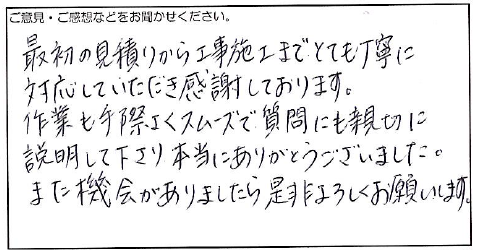 ご意見・ご感想などをお聞かせください。
最初の見積りから工事施工までとても丁寧に
対応していただき感謝しております。
作業も手際よくスムーズで質問にも親切に
説明して下さり本当にありがとうございました。
また機会がありましたら是非よろしくお願いします。